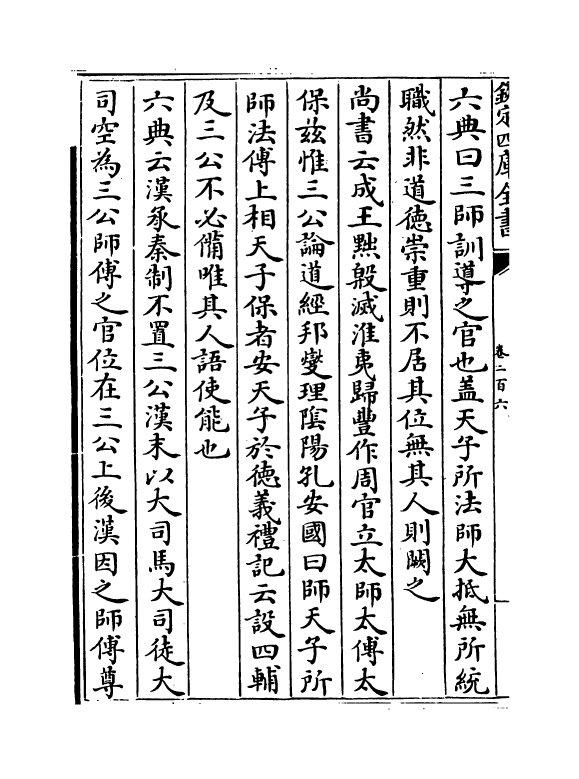 欽定四庫全書
卷二百六
六典曰三師訓導之官也蓋天子所法師大抵無所統
職然非道徳崇重則不居其位無其人則闕之
尚書云成王黜殷滅淮夷歸豐作周官立太師太傅太
保兹惟三公論道經邦燮理隂陽孔安國曰師天子所
師法傅上相天子保者安天子於徳義禮記云設四輔
及三公不必備唯其人語使能也
六典云漢承秦制不置三公漢末以大司馬大司徒大
司空為三公師傅之官位在三公上後漢因之師傅尊